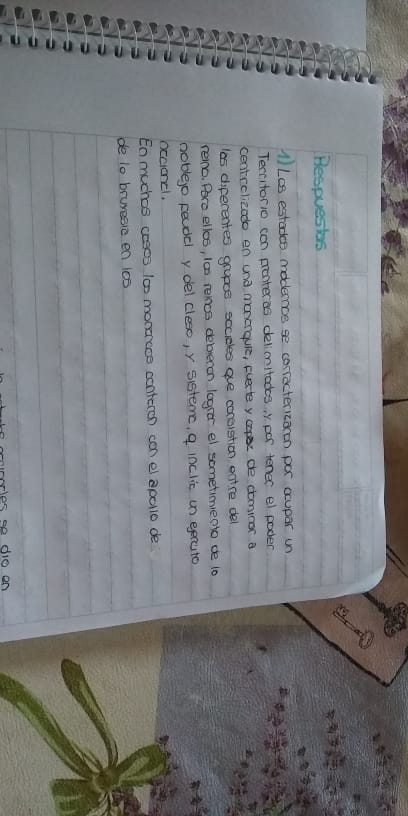 Respuestas
1) Los estados modernos se carracterizaron por ocupar un
Territorio con fronteras delimitados, y por tener el poder
centralizado en una monarquia, fuerte y capaz de dominar a
las diferentes grupos sociales que consistian entre del
reino. Para ellos, los reinos debieron lograr el sometimiento de lo
nobleza feudal y del clero, y sistema, q inclia un ejercito
nacional.
En muchos casos los monarcas contaron con el apollo de
de la brunesia en los
se dio en